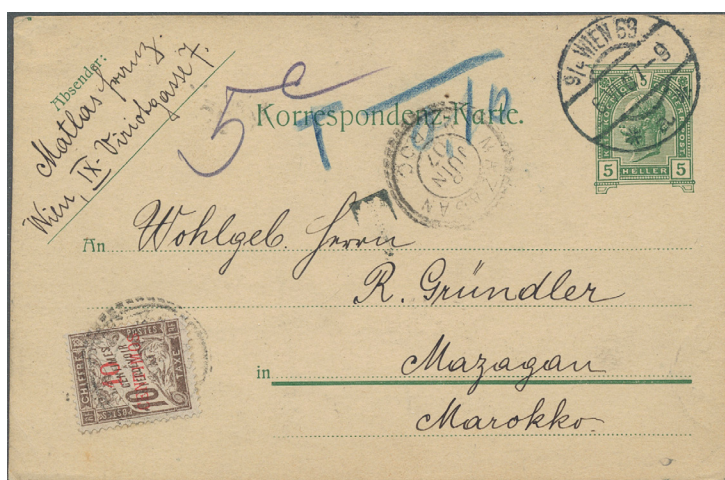 Absender:
Matlas Franz.
Wien, IX. Viriotgasse 7.
5 c
T 0,10
Korrespondenz-Karte.
9/4 WIEN 63
5
5 HELLER 5
MAZAGAN
MAROC
8
JUIN
07
T
An Wohlgeb. Herrn
R. Gründler
in Mazagan
Marokko.
CHIFFRE
TAXE
POSTES
10
CENTIMES
10
CENTIMOS